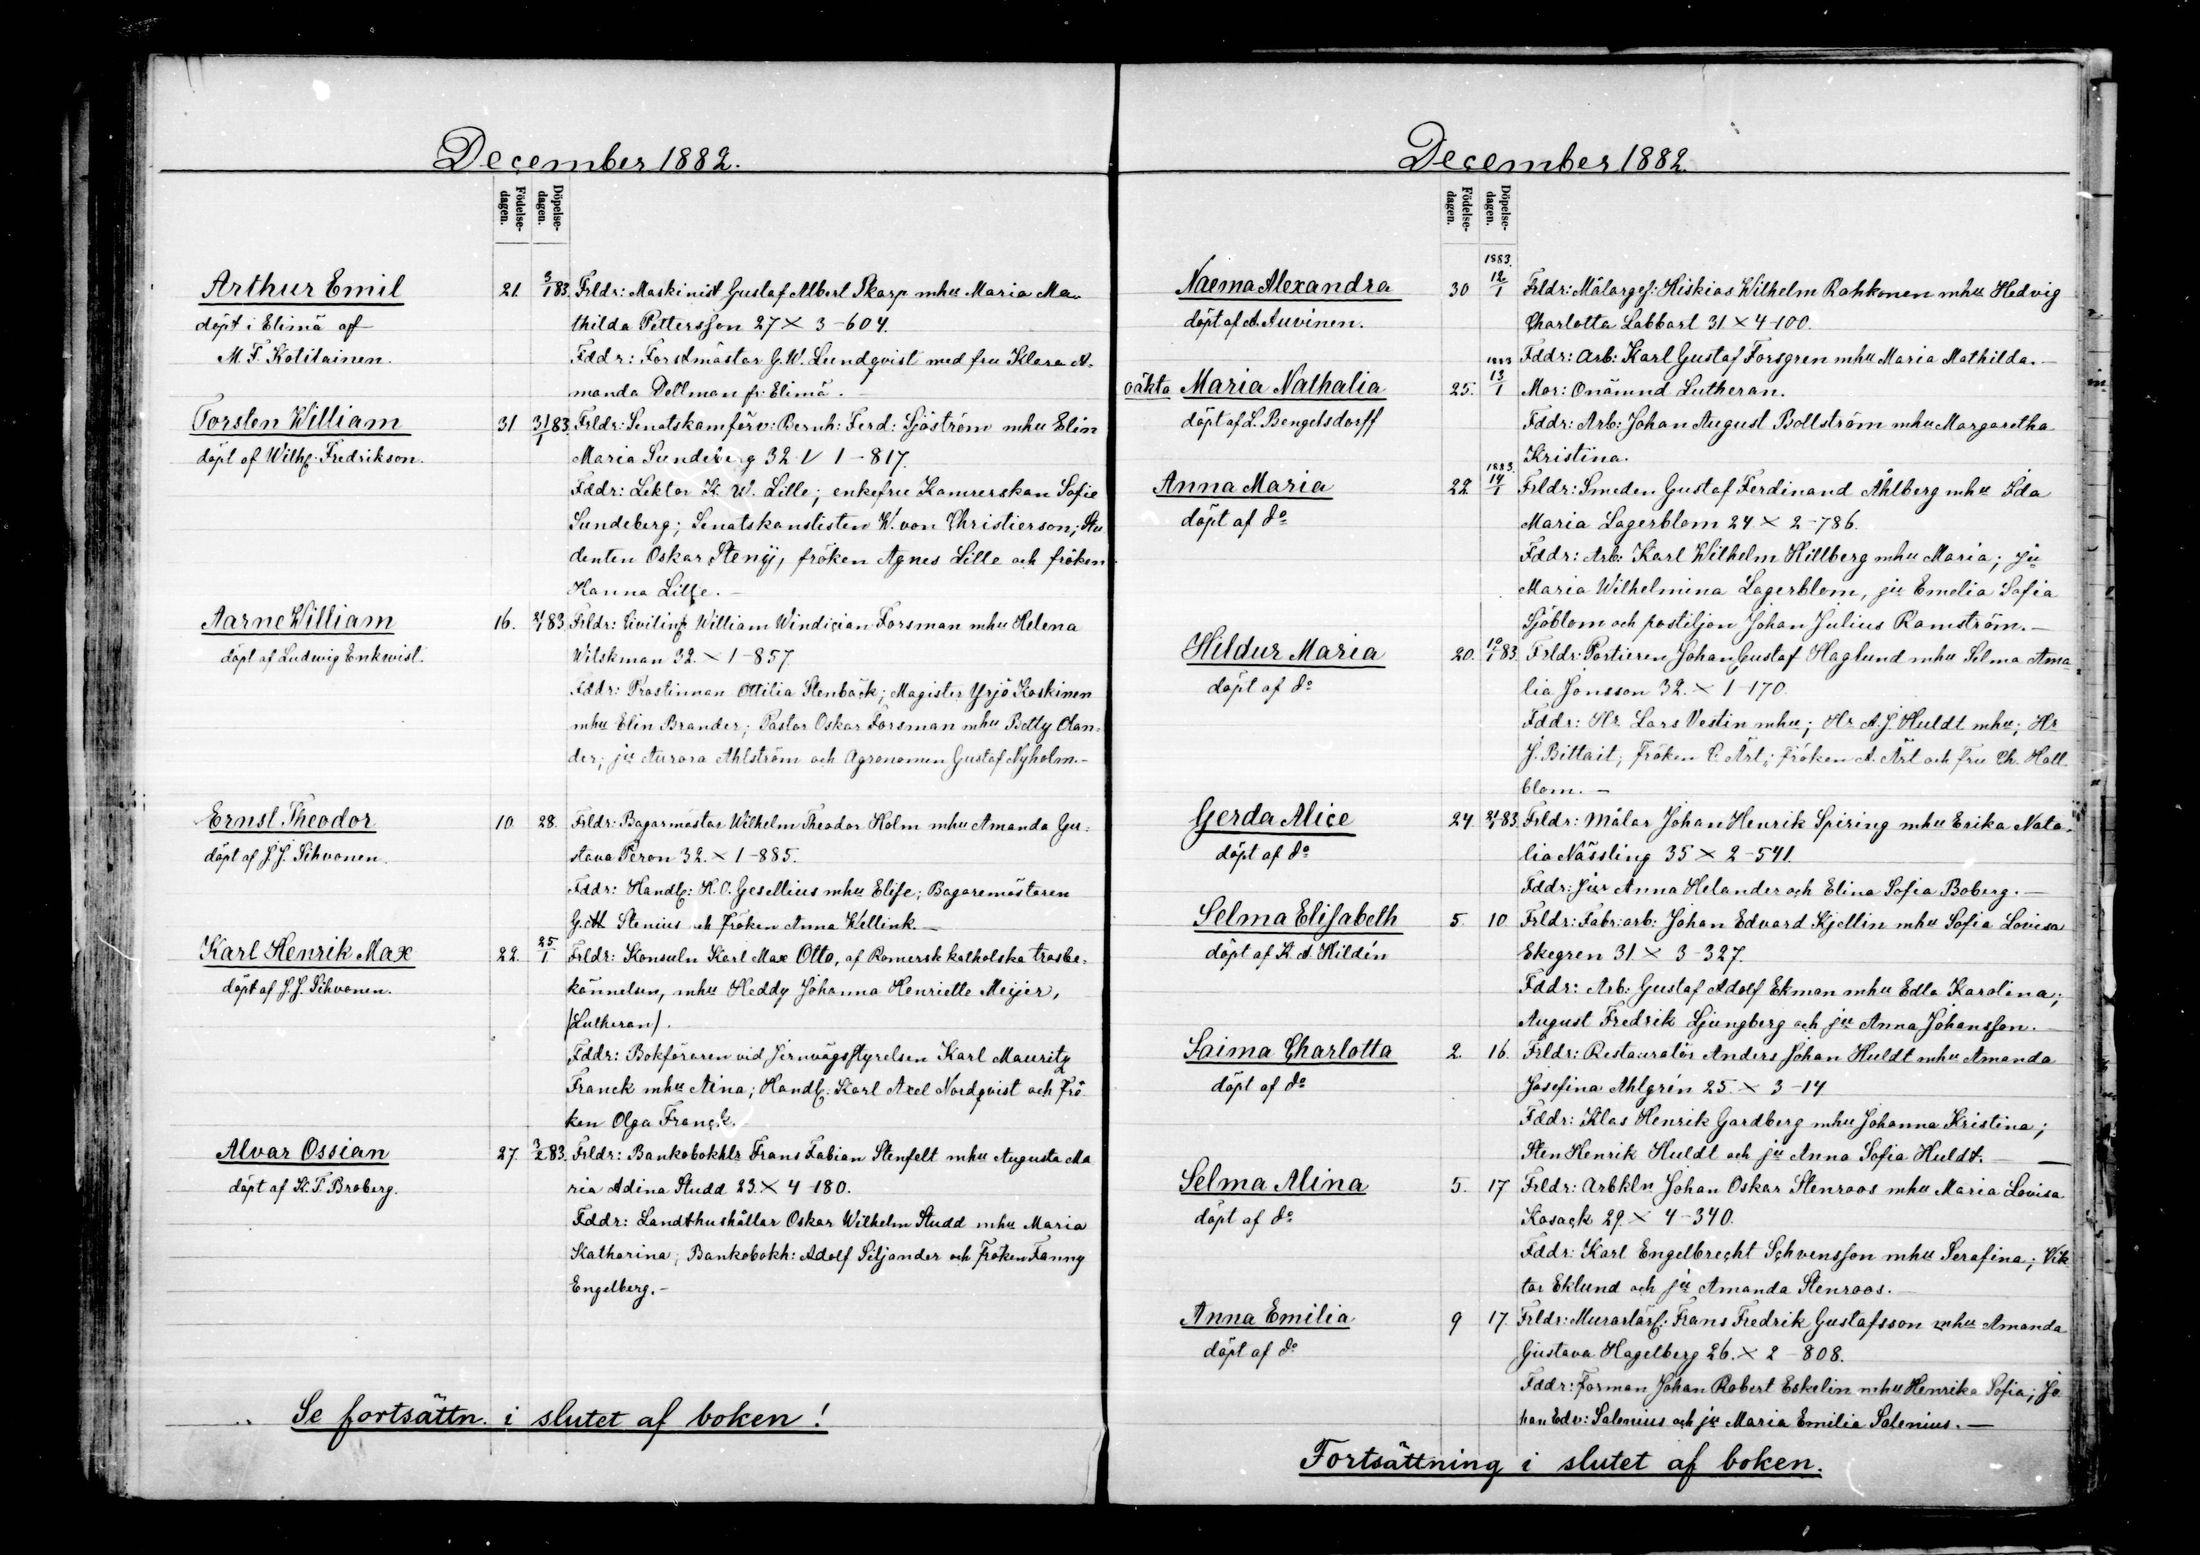 December 1882.
Födelse-dagen. Döpelse-dagen.
Arthur Emil 21. 3/1 83. Frldr: Maskinist Gustaf Albert Skarp mhu Maria Ma-
döpt i Elimä af thilda Pettersson 27 × 3-604.
M. F. Kotilainen. Fddr: Forstmästar G. W. Lundqvist med fru Klara A-
manda Dellman fr: Elimä.
Torsten William 31 31/1 83. Frldr: Senatskamförv: Bernh: Ferd: Sjöström mhu Elin
döpt af Wilh: Fredrikson. Maria Sundeberg 32 V 1-817.
Fddr: Lektor K. W. Lille; enkefru Kamrerskan Sofie
Sundeberg; Senatskanslisten W. von Christierson; Stu
denten Oskar Stenij, fröken Agnes Lille och fröken
Hanna Lille.-
Aarne William 16. 83 Frldr: Civiling William Windician Forsman mhu Helena
döpt af Ludvig Enkvist. Wilskman 32. × 1-857.
Fddr: Prostinnan Ottilia Stenbäck; Magister Yrjö Koskinen
mhu Elin Brander; Pastor Oskar Forsman mhu Betty Olan-
der; ju Aurora Ahlström och Agronomen Gustaf Nyholm.-
Ernst Theodor 10. 28. Frldr: Bagarmästar Wilhelm Theodor Holm mhu Amanda Gu-
döpt af J. J. Sihvonen. stava Peron 32. × 1-885.
Fddr: Handl: H. O. Gesellius mhu Elise; Bagaremästaren
Stenius och Fröken Anna Wellink.-
Karl Henrik Max 22. 25/1 Frldr: Konsuln Karl Max Otto, af Romersk katholska trosbe-
döpt af J. J. Sihvonen. kännelsen, mhu Heddy Johanna Henriette Meyer,
(Lutheran).
Fddr: Bokföraren vid Jernvägsstyrelsen Karl Mauritz
Franck mhu Aina; Handl. Karl Axel Nordqvist och Frö
ken Olga Franck.
Alvar Ossian 27. 3/2 83. Frldr: Bankobokhlr Frans Fabian Stenfelt mhu Augusta Ma
döpt af K. T. Broberg. ria Adina Studd 23. × 4-180.
Fddr: Landthushållar Oskar Wilhelm Studd mhu Maria
Katharina; Bankobokh: Adolf Siljander och Fröken Fanny
Engelberg.-
Se fortsättn. i slutet af boken!
December 1882.
Födelse-dagen. Döpelse-dagen.
1883.
Naema Alexandra 30 12/1 Frldr: Målarges: Hiskias Wilhelm Rahkonen mhu Hedvig
döpt af A. Auvinen. Charlotta Labbart 31 × 4-100.
Fddr: Arb: Karl Gustaf Forsgren mhu Maria Mathilda.-
1883
oäkta Maria Nathalia 25. 13/1 Mor: Onämnd Lutheran.
döpt af L. Bengelsdorff Fddr: Arb: Johan August Bollström mhu Margaretha
Kristina.
1883.
Anna Maria 22. 14/1 Frldr: Smeden Gustaf Ferdinand Åhlberg mhu Ida
döpt af do Maria Lagerblom 24 × 2-786.
Fddr: Arb: Karl Wilhelm Hillberg mhu Maria; ju
Maria Wilhelmina Lagerblom, ju Emelia Sofia
Sjöblom och postiljon Johan Julius Ramström.-
Hildur Maria 20. 10/1 83. Frldr: Portieren Johan Gustaf Haglund mhu Selma Ama-
döpt af do lia Jonsson 32. × 1-170.
Fddr: Hr. Lars Vestin mhu; Hr A. J. Huldt mhu; Hr
J. Bittait, fröken C. Ärt; fröken A. Ärt och fru Ch. Hall
blom.-
Gerda Alice 24 83. Frldr: Målar Johan Henrik Spiring mhu Erika Nata-
döpt af do lia Nässling 35 × 2-541.
Fddr: jur Anna Helander och Elina Sofia Boberg.-
Selma Elisabeth 5. 10 Frldr: Fabr: arb: Johan Edvard Kjellin mhu Sofia Lovisa
döpt af K. A. Hildén Ekegren 31 × 3-327.
Fddr: Arb: Gustaf Adolf Ekman mhu Edla Karolina;
August Fredrik Ljungberg och ju Anna Johansson.-
Saima Charlotta 2. 16. Frldr: Restauratör Anders Johan Huldt mhu Amanda
döpt af do Josefina Ahlgrén 25. × 3-14
Fddr: Klas Henrik Gardberg mhu Johanna Kristina;
Sten Henrik Huldt och ju Anna Sofia Huldt.-
Selma Alina 5. 17 Frldr: Arbkln Johan Oskar Stenroos mhu Maria Lovisa
döpt af do Kasack 29. × 4-340.
Fddr: Karl Engelbrecht Schvensson mhu Serafina; Vik
tor Eklund och ju Amanda Stenroos.
Anna Emilia 9 17. Frldr: Murarlärl: Frans Fredrik Gustafsson mhu Amanda
döpt af do Gustava Hagelberg 26. × 2-808.
Fddr: Forman Johan Robert Eskelin mhu Henrika Sofia; Jo
han Edv: Salenius och ju Maria Emilia Salenius.-
Fortsättning i slutet af boken.